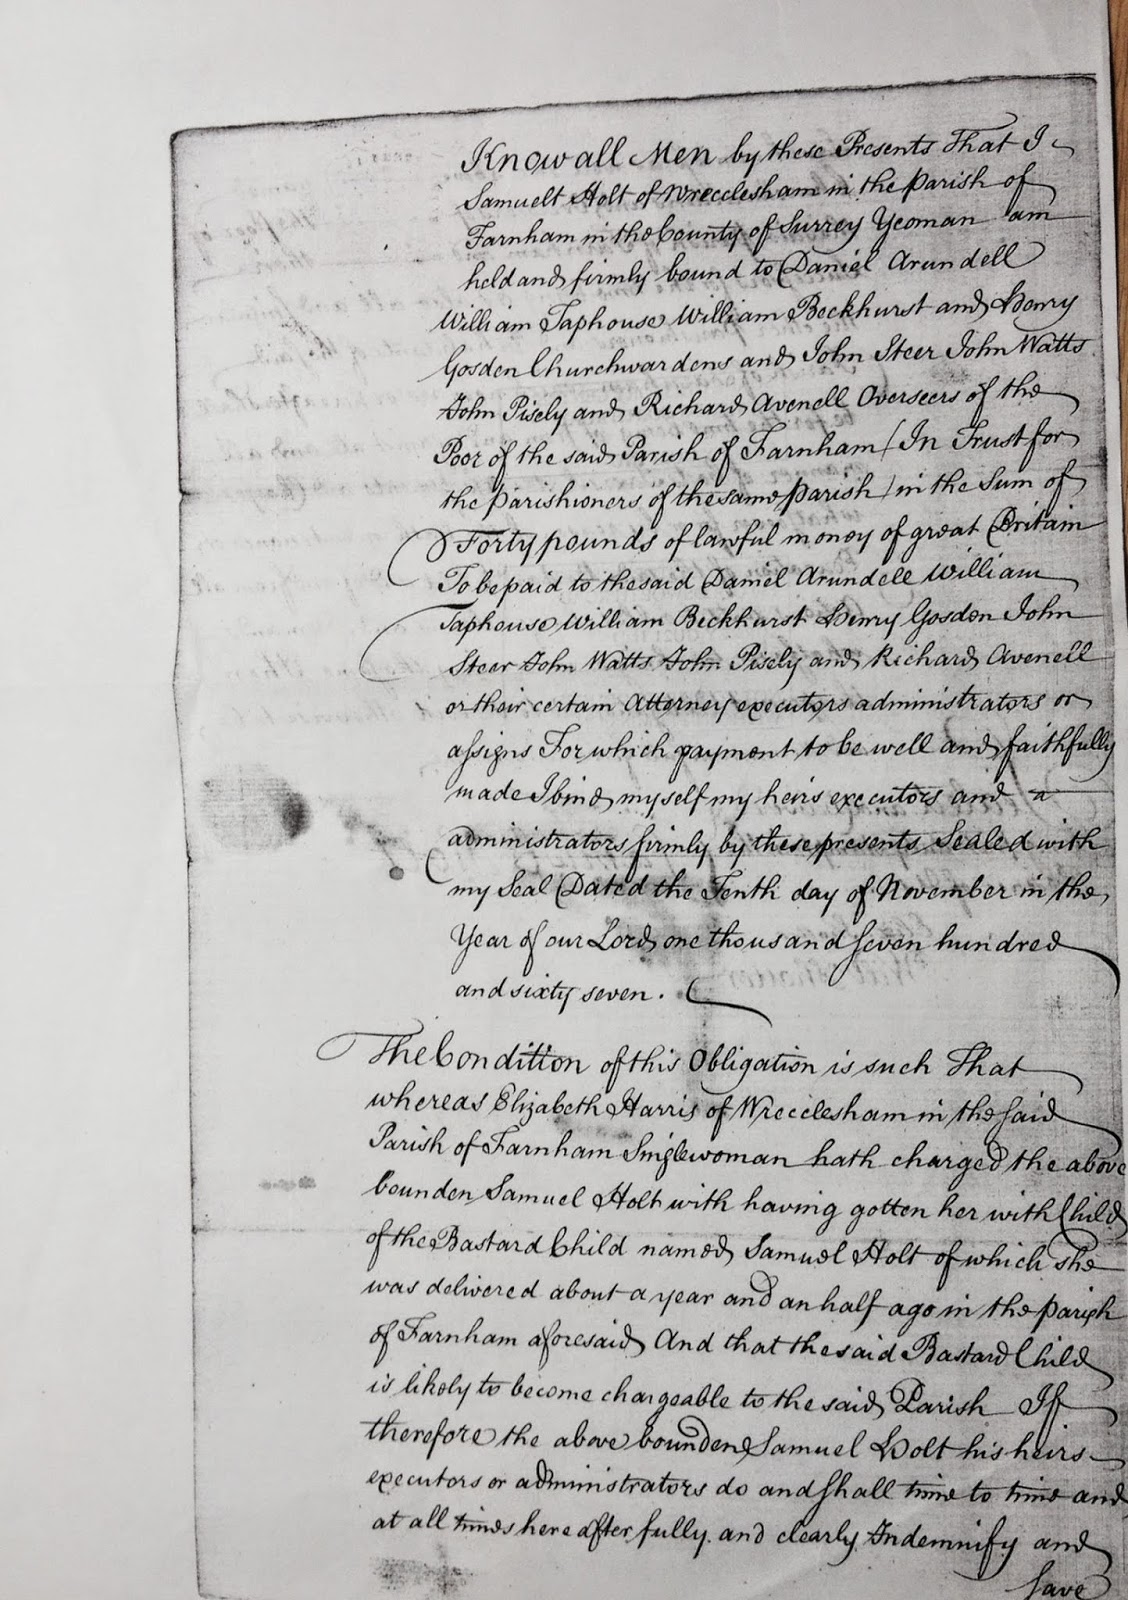 Know all Men by these Presents That I
Samuelt Holt of Wrecclesham in the Parish of
Farnham in the County of Surrey Yeoman am
held and firmly bound to Daniel Arundell
William Taphouse William Beckhurst and Henry
Gosden Churchwardens and John Steer John Watts
John Pisely and Richard Avenell Overseers of the
Poor of the said Parish of Farnham (In Trust for
the Parishioners of the same Parish) in the Sum of
Forty pounds of lawful money of great Britain
To be paid to the said Daniel Arundell William
Taphouse William Beckhurst Henry Gosden John
Steer John Watts John Pisely and Richard Avenell
or their certain Attorney executors administrators or
assigns For which payment to be well and faithfully
made I bind myself my heirs executors and
administrators firmly by these presents Sealed with
my Seal Dated the Tenth day of November in the
Year of our Lord one thousand seven hundred
and sixty seven.
The Condition of this Obligation is such That
whereas Elizabeth Harris of Wrecclesham in the said
Parish of Farnham Singlewoman hath charged the above
bounden Samuel Holt with having gotten her with Child
of the Bastard Child named Samuel Holt of which she
was delivered about a year and an half ago in the parish
of Farnham aforesaid And that the said Bastard Child
is likely to become chargeable to the said Parish If
therefore the above bounden Samuel Holt his heirs
executors or administrators do and shall time to time and
at all times here after fully and clearly Indemnify and
Save